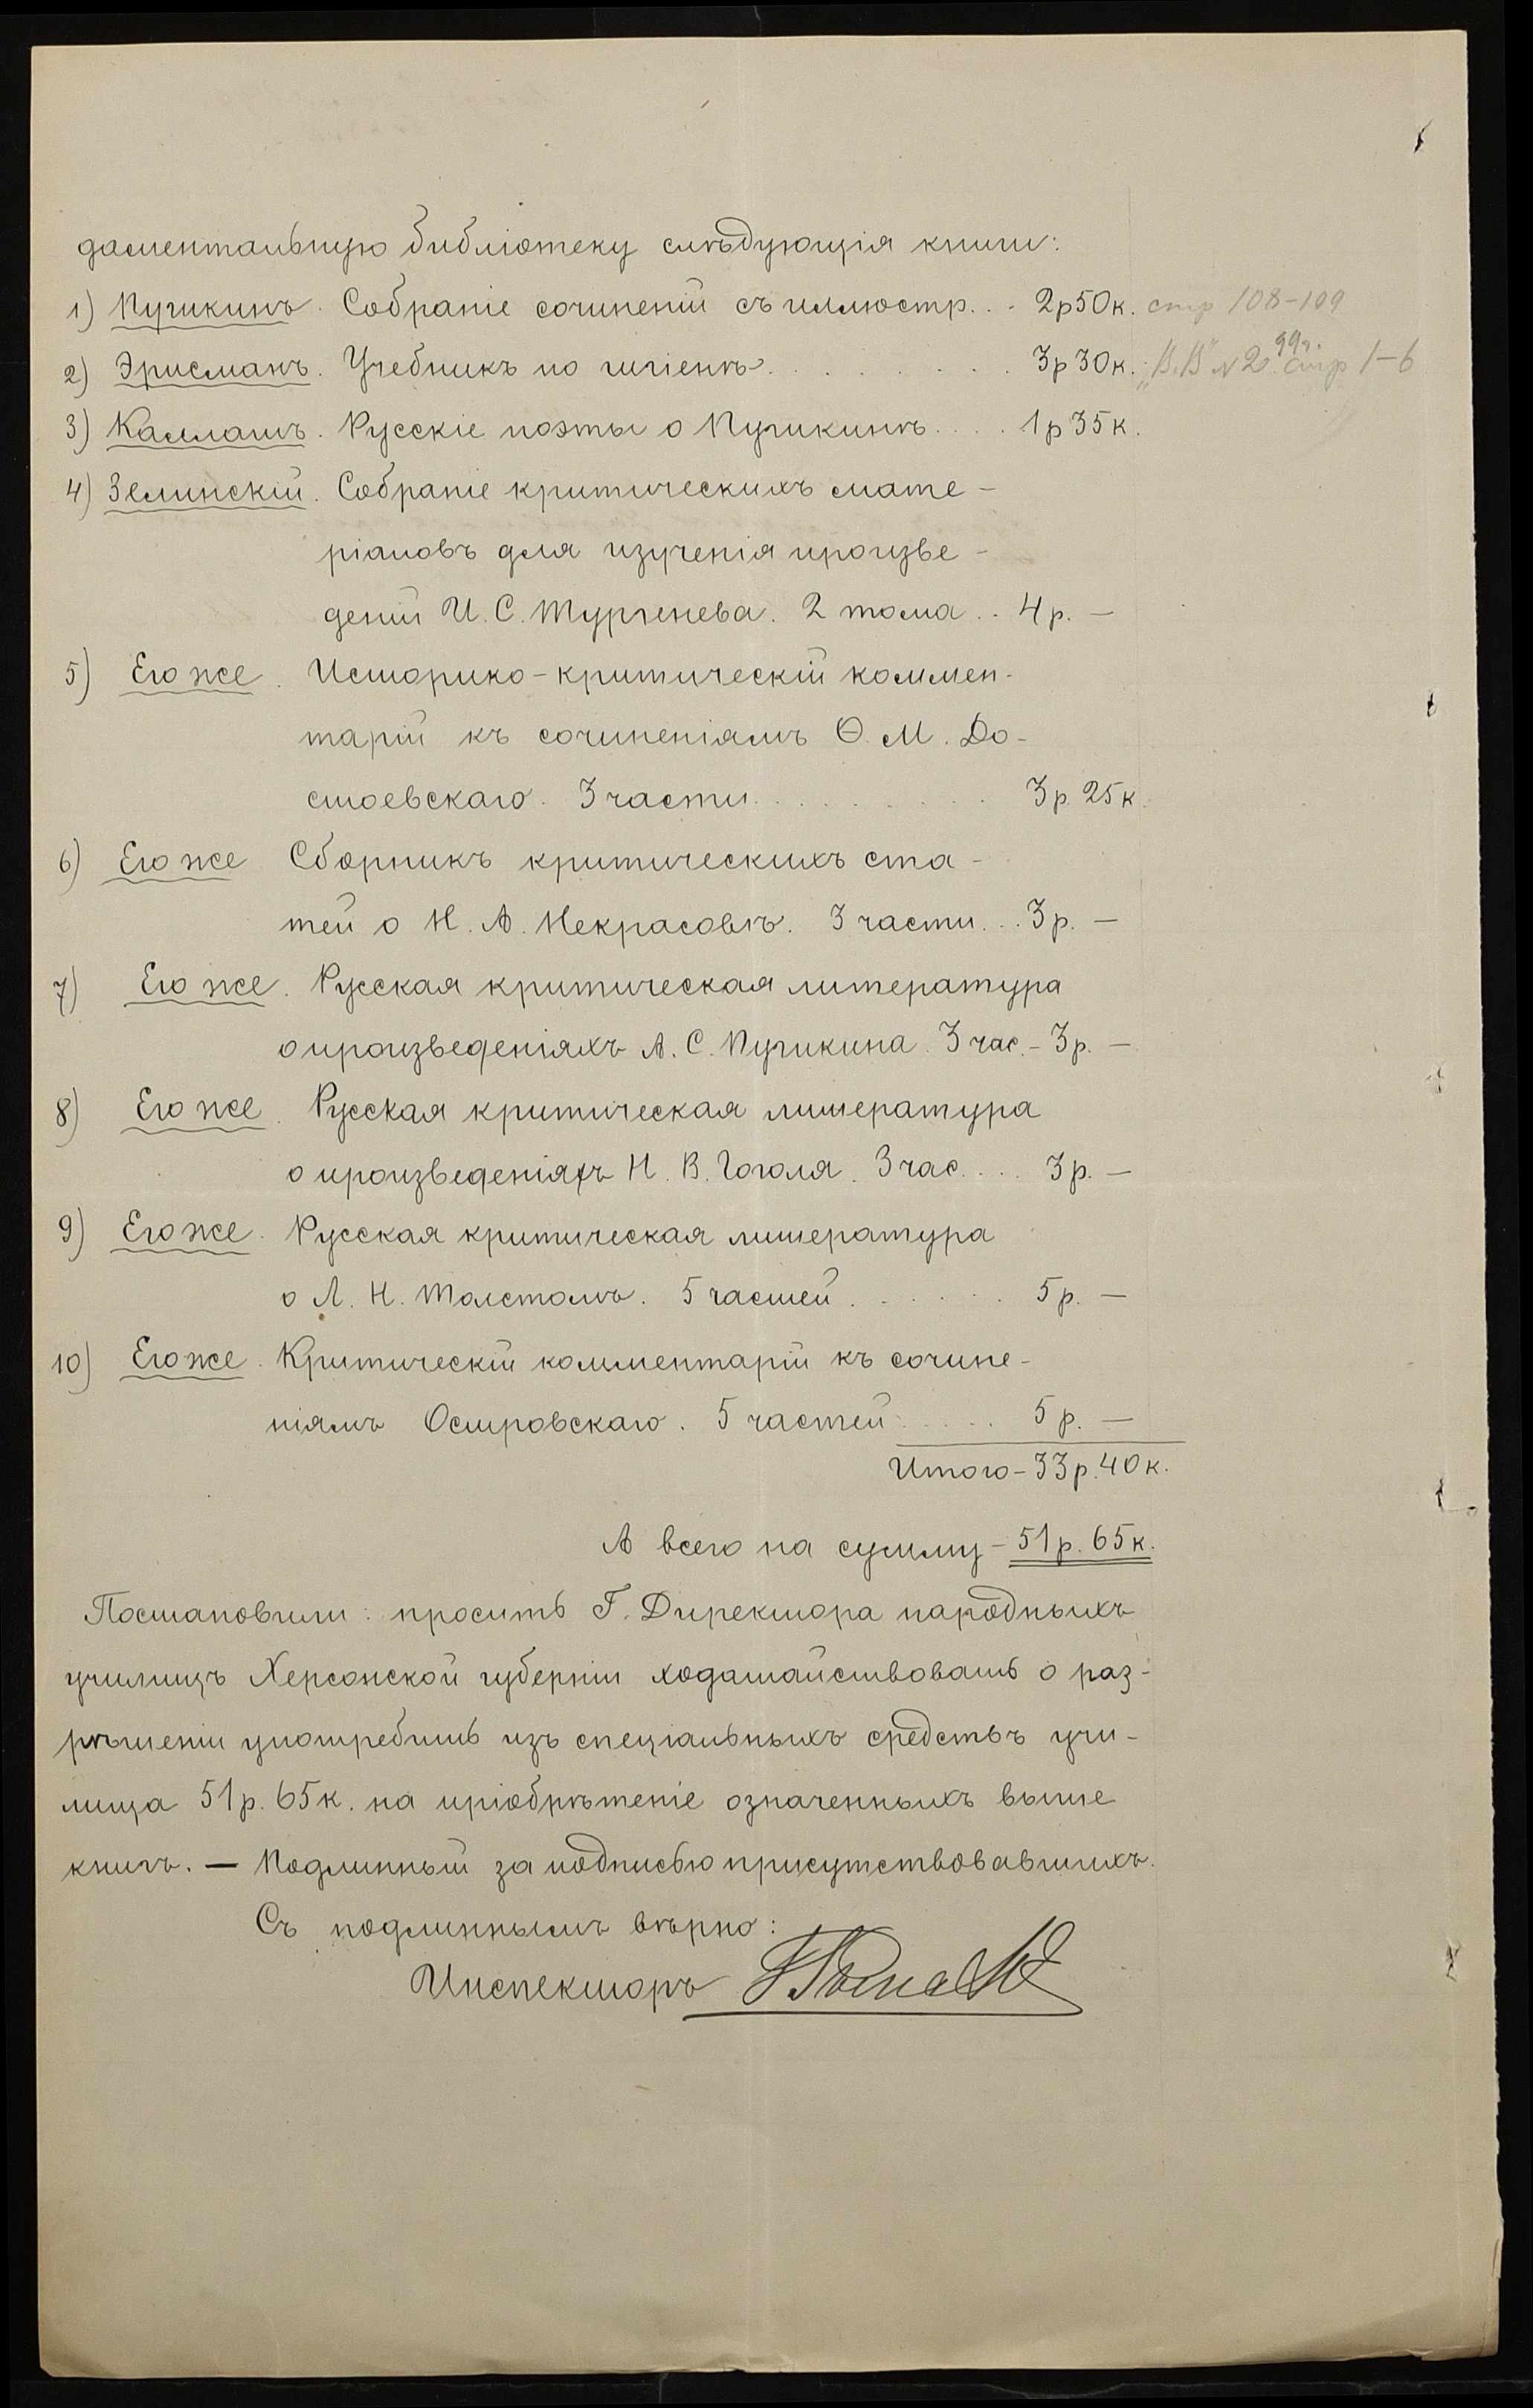 даментальную библіотеку слѣдующія книги:
1) Пушкинъ. Собраніе сочиненій съ иллюстр. . . 2р50к. стр 108-109
2) Эрисманъ. Учебникъ по гигіенѣ . . . . . . . . . 3р30к. „В.В" №2 99г. стр 1-6
3) Каллашъ. Русскіе поэты о Пушкинѣ . . . . 1р35к.
4) Зелинскій. Собраніе критическихъ мате-
ріаловъ для изученія произве-
деній И. С. Тургенева. 2 тома . . 4р. —
5) Его же. Историко-критическій коммен-
тарій къ сочиненіямъ Ѳ. М. До-
стоевскаго. 3 части . . . . . . . . . 3р. 25к.
6) Его же Сборникъ критическихъ ста-
тей о Н. А. Некрасовѣ. 3 части . . . 3р. —
7) Его же. Русская критическая литература
о произведеніяхъ А. С. Пушкина. 3 час. - 3р. —
8) Его же. Русская критическая литература
о произведеніяхъ Н. В. Гоголя. 3 час. . . . 3р. —
9) Его же. Русская критическая литература
о Л. Н. Толстомъ. 5 частей . . . . . . . 5р. —
10) Его же. Критическій комментарій къ сочине-
ніямъ Островскаго. 5 частей . . . . . 5р. —
Итого - 33р. 40к.
А всего на сумму - 51р. 65к.
Постановили: просить Г. Директора народныхъ
училищъ Херсонской губерніи ходатайствовать о раз-
рѣшеніи употребить изъ спеціальныхъ средствъ учи-
лища 51р. 65к. на пріобрѣтеніе означенныхъ выше
книгъ. — Подлинный за подписью присутствовавшихъ.
Съ подлиннымъ вѣрно:
Инспекторъ